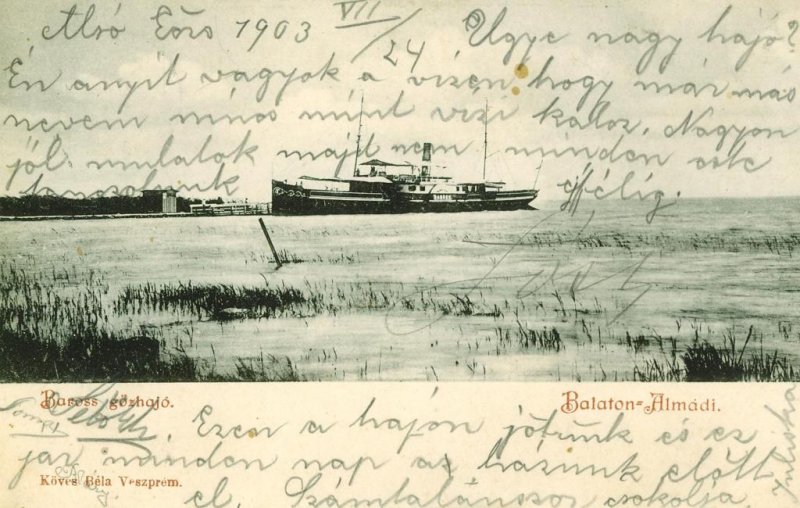 Alsó Eőrs 1903 VII/24 Ugye nagy hajó?
Én anyit vagyok a vízen hogy már más
nevem nincs mint vízi kaloz. Nagyon
jól mulatok majd nem minden este
tanczolunk ½ élig.
BAROSS
Baross gőzhajó.
Balaton-Almádi.
Ezen a hajón jötünk és ez
jár minden nap az házunk előtt
el. Számtalánszor csokolja
Juliska
Köves Béla Veszprém.